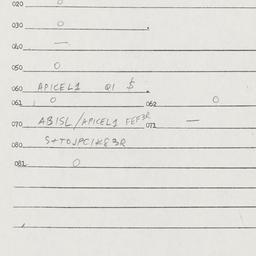 020 0
030 0
040 —
050 0
060 APICEL1 Q1 $
061 0 062 0
070 ABISL/APICEL1 FEF3R 071 —
080
081 0